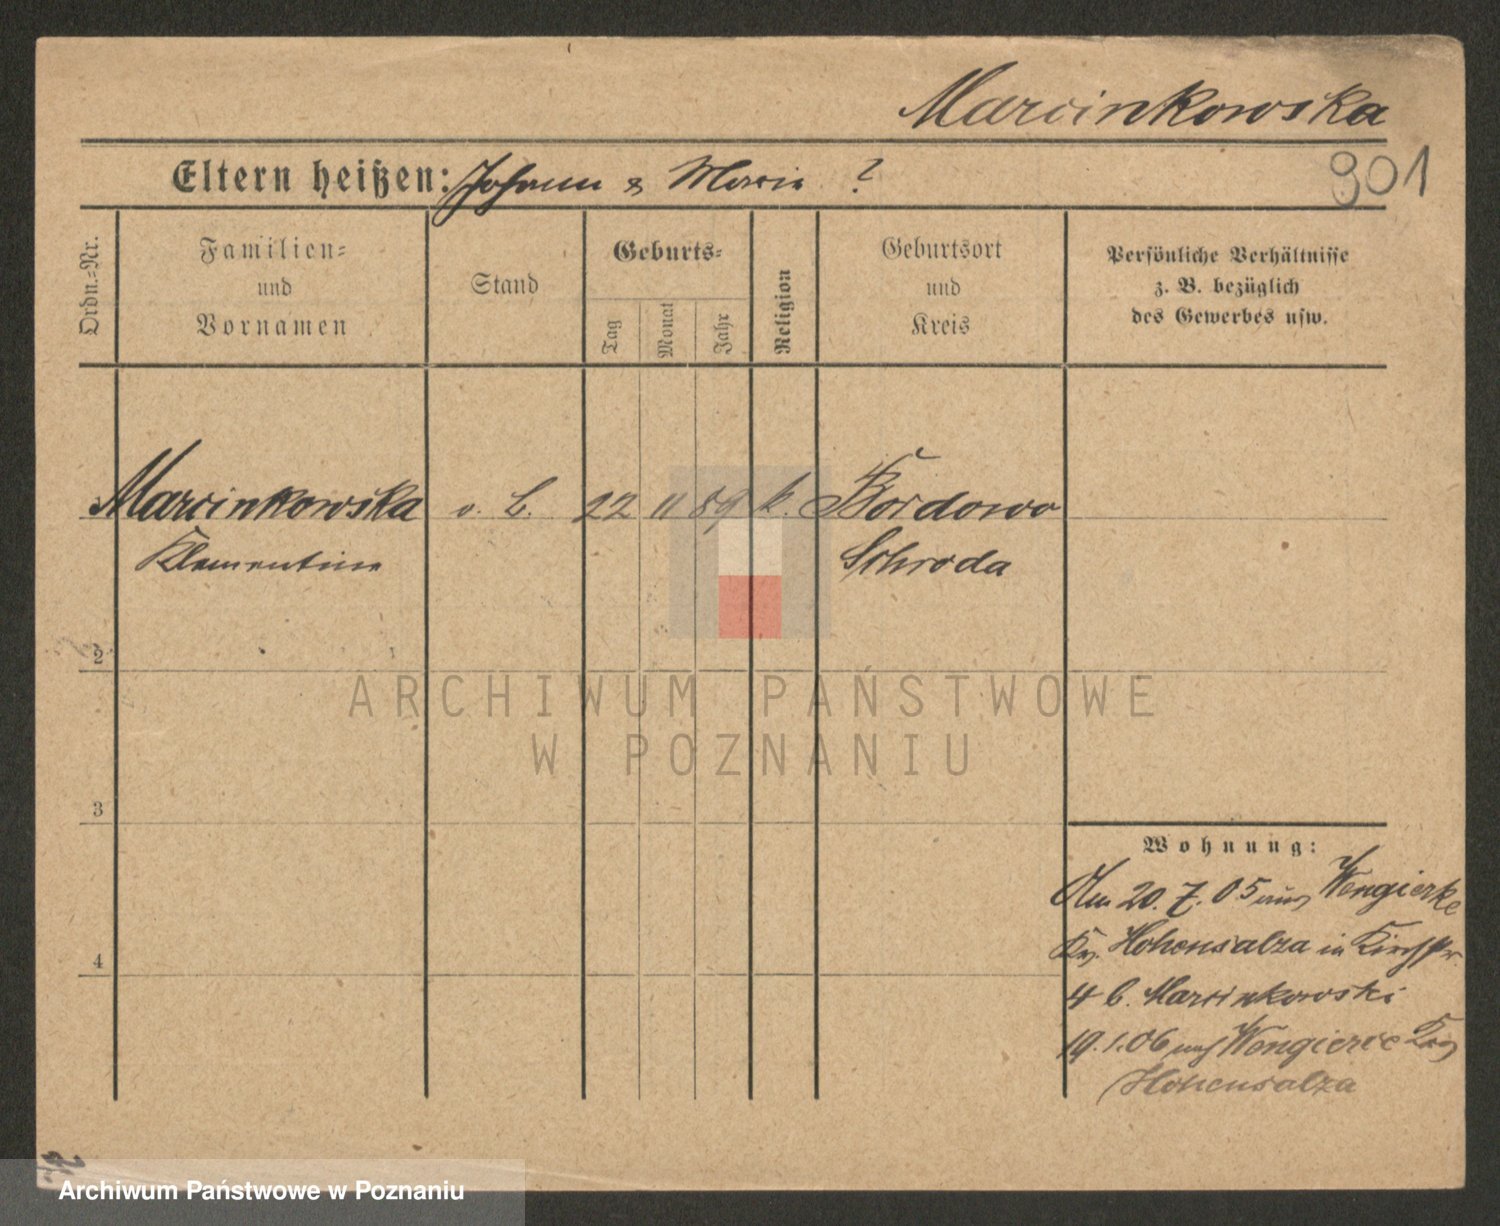 Marcinkowska
Eltern heißen: Johann & Maria ?
901
Ordn.-Nr.
Familien-
und
Vornamen
Stand
Geburts-
Tag
Monat
Jahr
Religion
Geburtsort
und
Kreis
Persönliche Verhältnisse
z. B. bezüglich
des Gewerbes usw.
Marcinkowska o. B. 22 11 89 k. Bordowo
Klementine Schroda
2
3
4
Wohnung:
Am 20. 7. 05 aus Wengierke
Krs. Hohensalza in Kirchstr.
4 b. Marcinkowski
19. 1. 06 nach Wengierce Krs
Hohensalza
ARCHIWUM PAŃSTWOWE
W POZNANIU
Archiwum Państwowe w Poznaniu